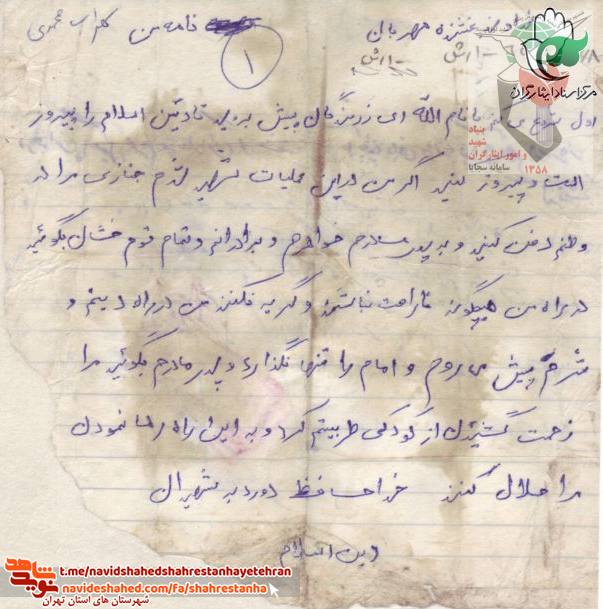 بخشنده مهربان
نامه من
گلراب محمدی
۱
اول شروع می کنم با نام الله ای رزمندگان پیش بروید تا دین اسلام را پیروز
است و پیروز کنید اگر من در این عملیات شهید شدم جنازی مرا در
وطنم دفن کنید و به پدر مادرم خواهرم و برادرانم و تمام قوم خشان بگوئید
در راه من هیچگونه ناراحت نباشند و گریه نکنند من در راه دینم و
شرم پیش می روم و امام را تنها نگذارید و پدر مادرم بگوئید مرا
زحمت کشیدن از کودکی طربیتم کرد و به این راه رسا نمودن
مرا حلال کنند خداحافظ درود بر شهیدان
دین اسلام
مرکز اسناد ایثارگران
بنیاد
شهید
و امور ایثارگران
سامانه سجایا
۱۳۵۸
نوید شاهد
t.me/navidshahedshahrestanhayetehran
navideshahed.com/fa/shahrestanha
شهرستان های استان تهران